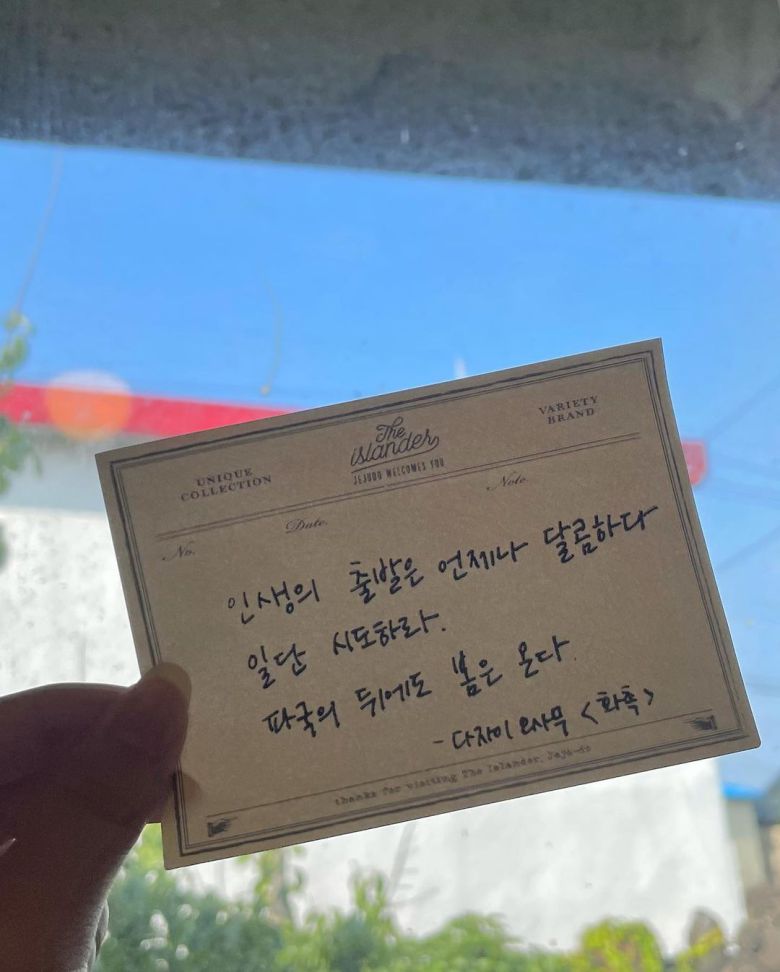 The islander
JEJUDO WELCOMES YOU
UNIQUE COLLECTION
VARIETY BRAND
No. Date. Note.
인생의 출발은 언제나 달콤하다
일단 시도하라.
파국의 뒤에도 봄은 온다.
- 다자이 오사무 <화촉>
thanks for visiting The Islander, Jeju-do